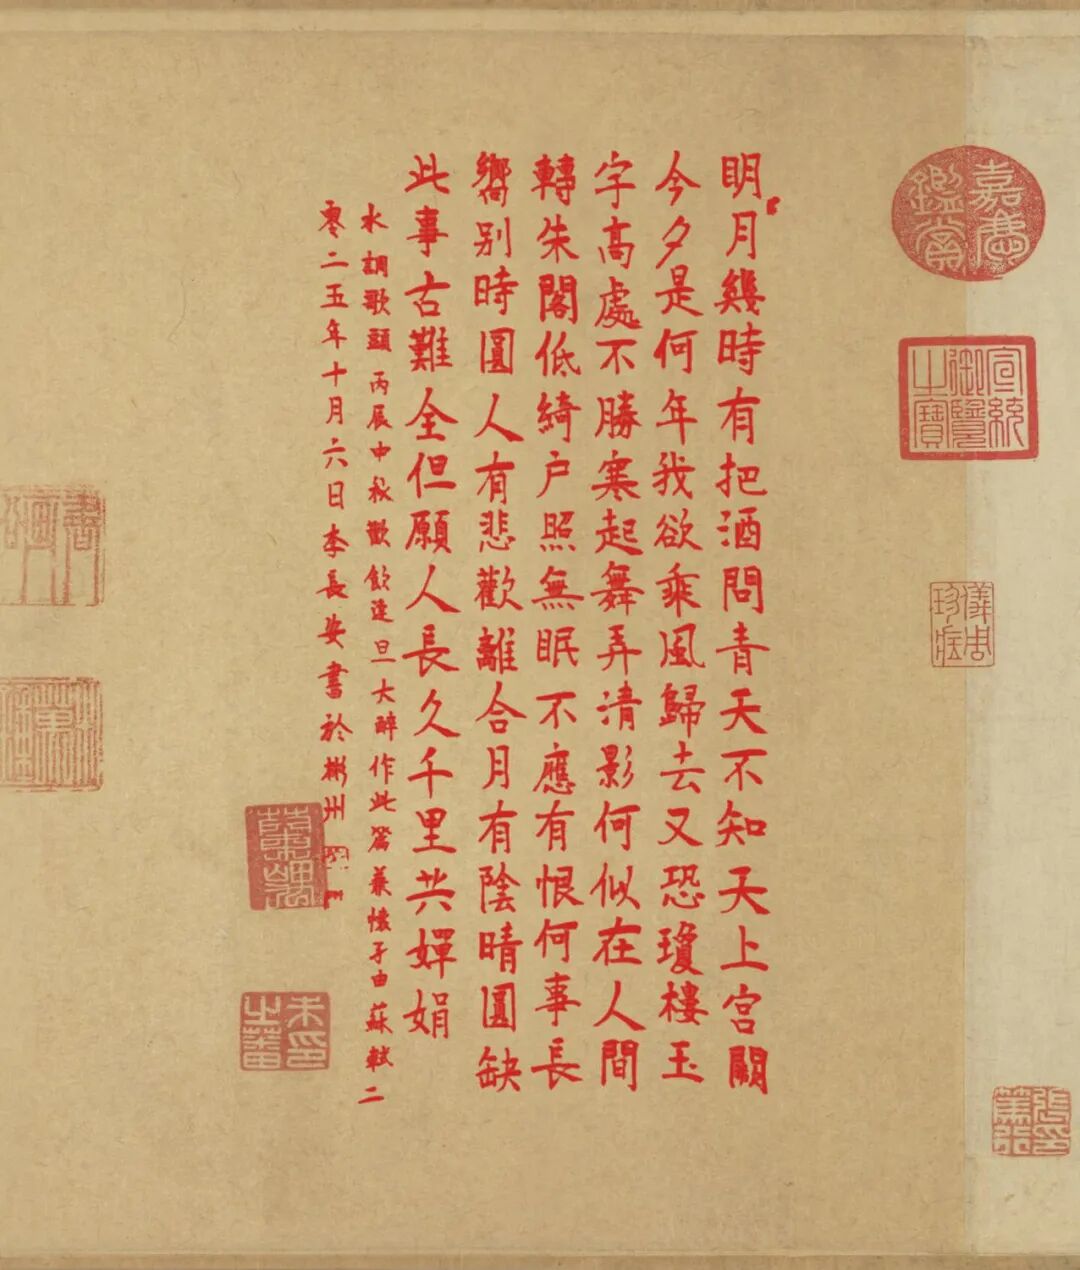 嘉慶鑑賞
宣統御覽之寶
儀周珍藏
明月幾時有把酒問青天不知天上宮闕
今夕是何年我欲乘風歸去又恐瓊樓玉
字高處不勝寒起舞弄清影何似在人間
轉朱閣低綺户照無眠不應有恨何事長
嚮别時圓人有悲歡離合月有陰晴圓缺
此事古難全但願人長久千里共嬋娟
水調歌頭丙辰中秋歡飲達旦大醉作此篇兼懷子由蘇軾二
零二五年十月六日李長安書於彬州